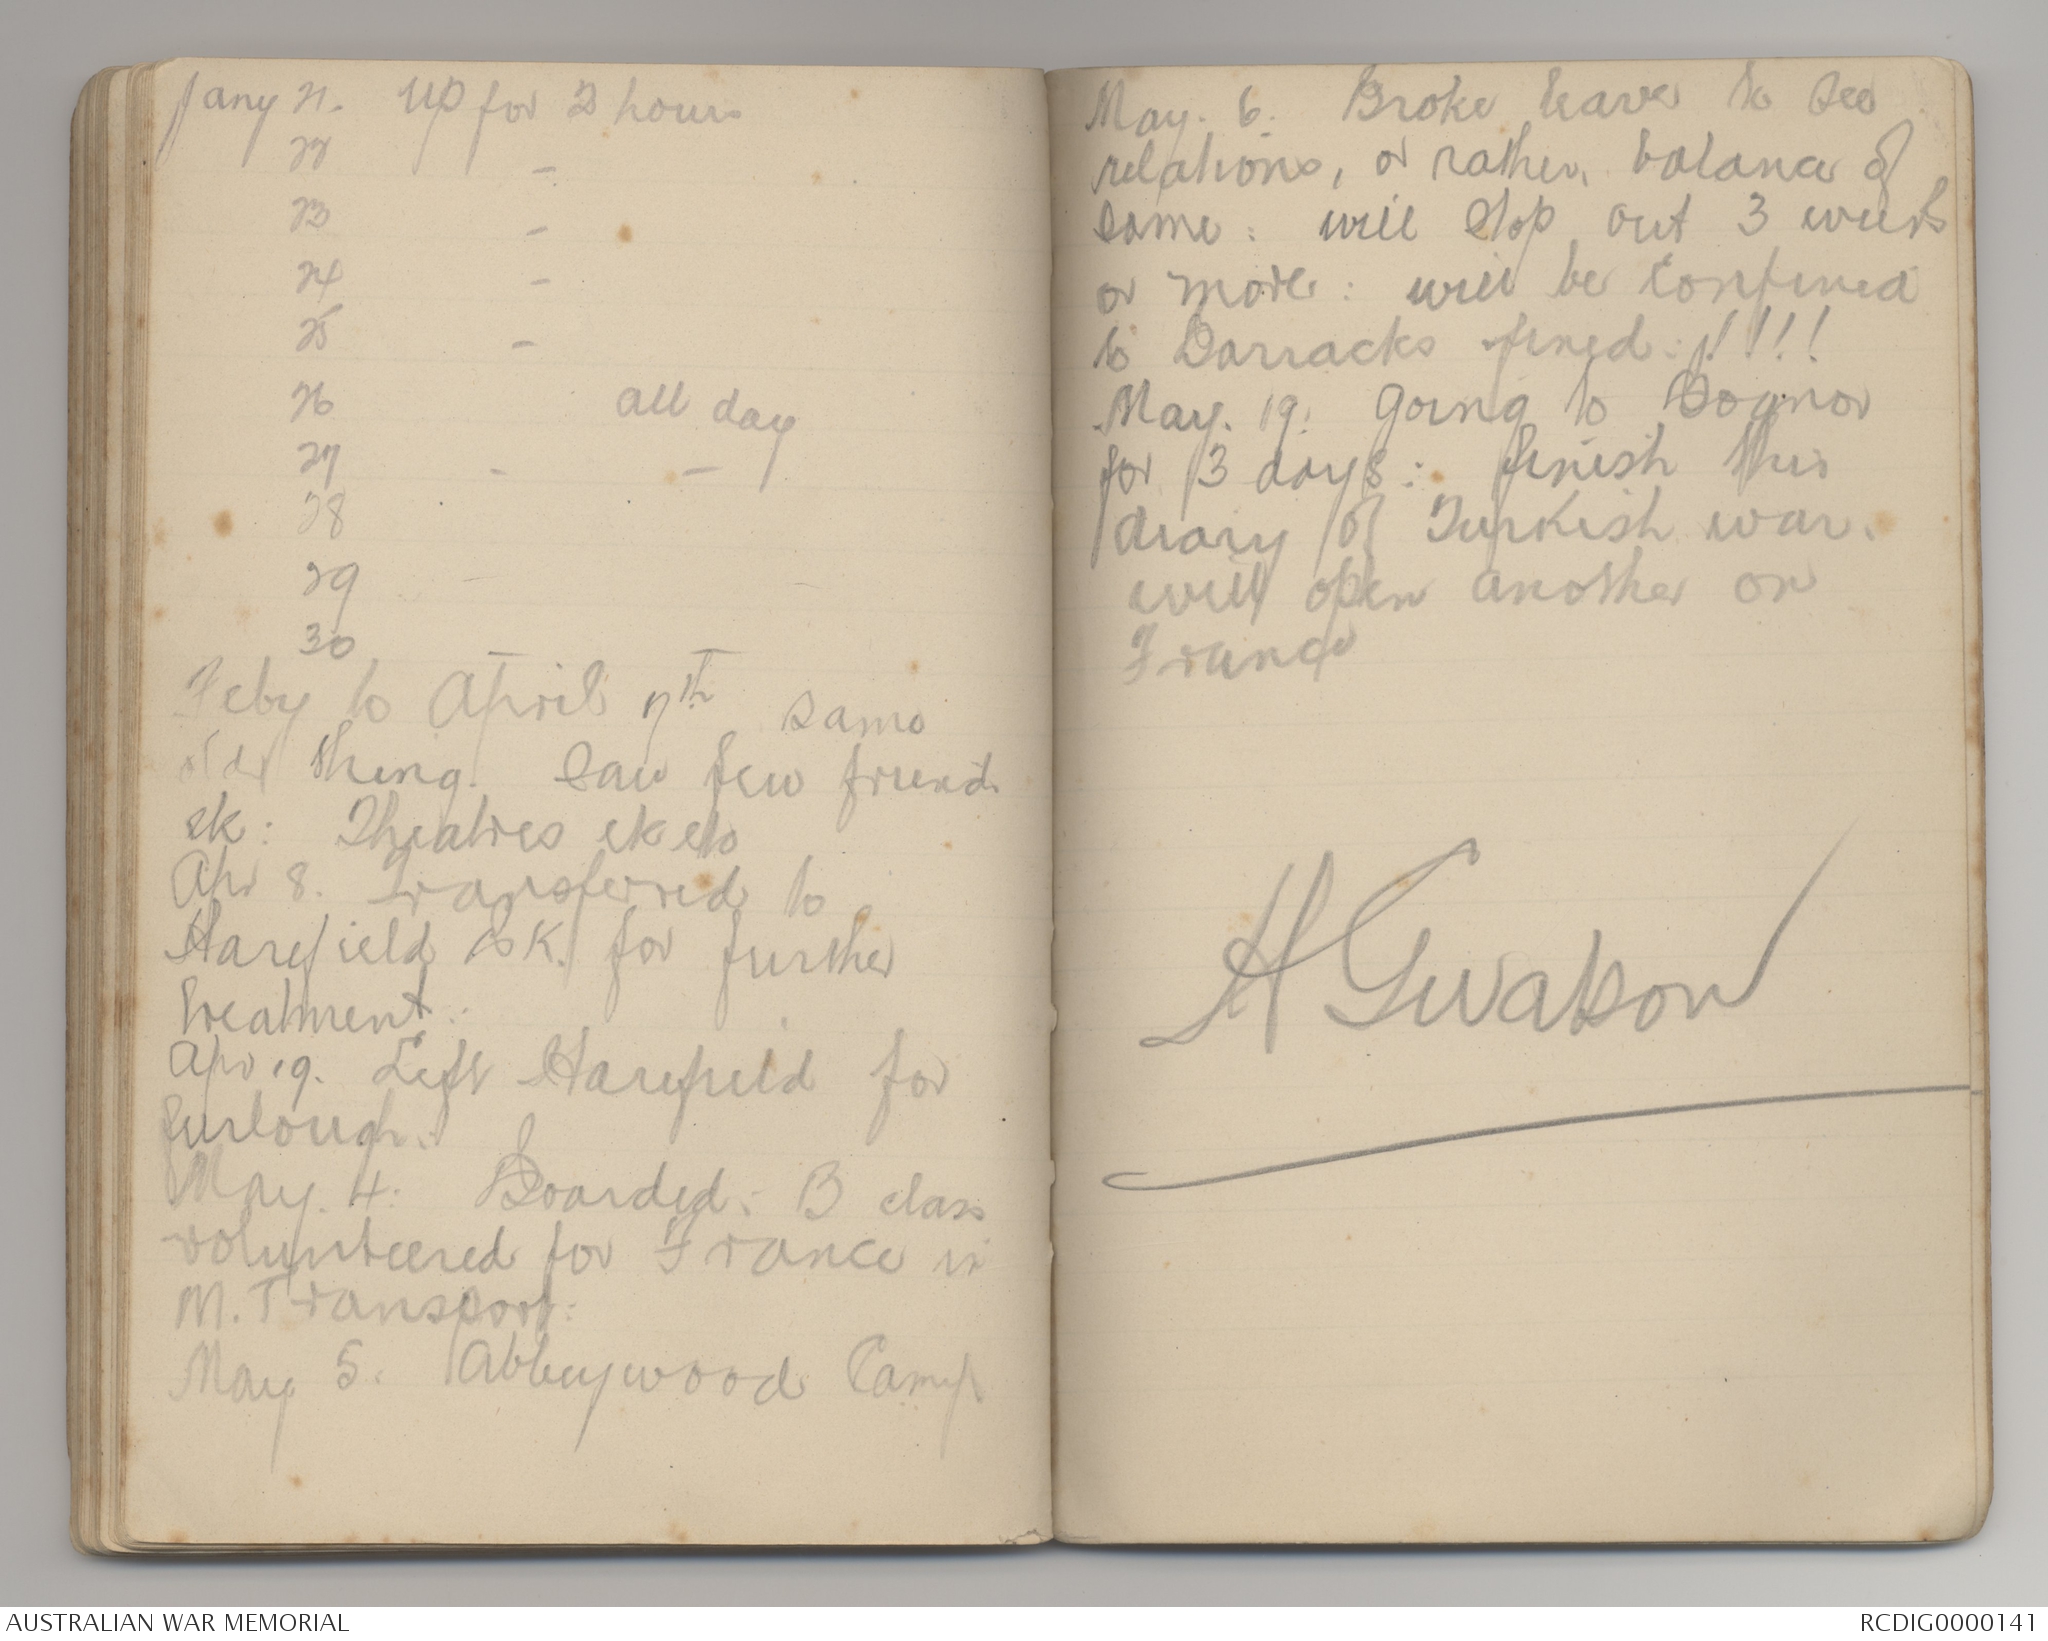 Jany 21. Up for 2 hours
22 -
23 -
24 -
25 -
26 all day
27 - -
28
29 - -
30 - -
Feby to April 7th same
older thing. Saw few friends
etc: Theatres etc etc
Apr 8. Transferred to
Harefield Pk. for further
treatment.
Apr 19. Left Harefield for
furlough.
May. 4. Boarded: B class
volunteered for France in
M. Transport:
May 5. Abbeywood Camp
May. 6. Broke leave to see
relations, or rather, balance of
same: will stop out 3 weeks
or more: will be confined
to Barracks fined: !!!!
May. 19. Going to Bognor
for 3 days: finish this
diary of Turkish war.
will open another on
France
AUSTRALIAN WAR MEMORIAL
RCDIG0000141